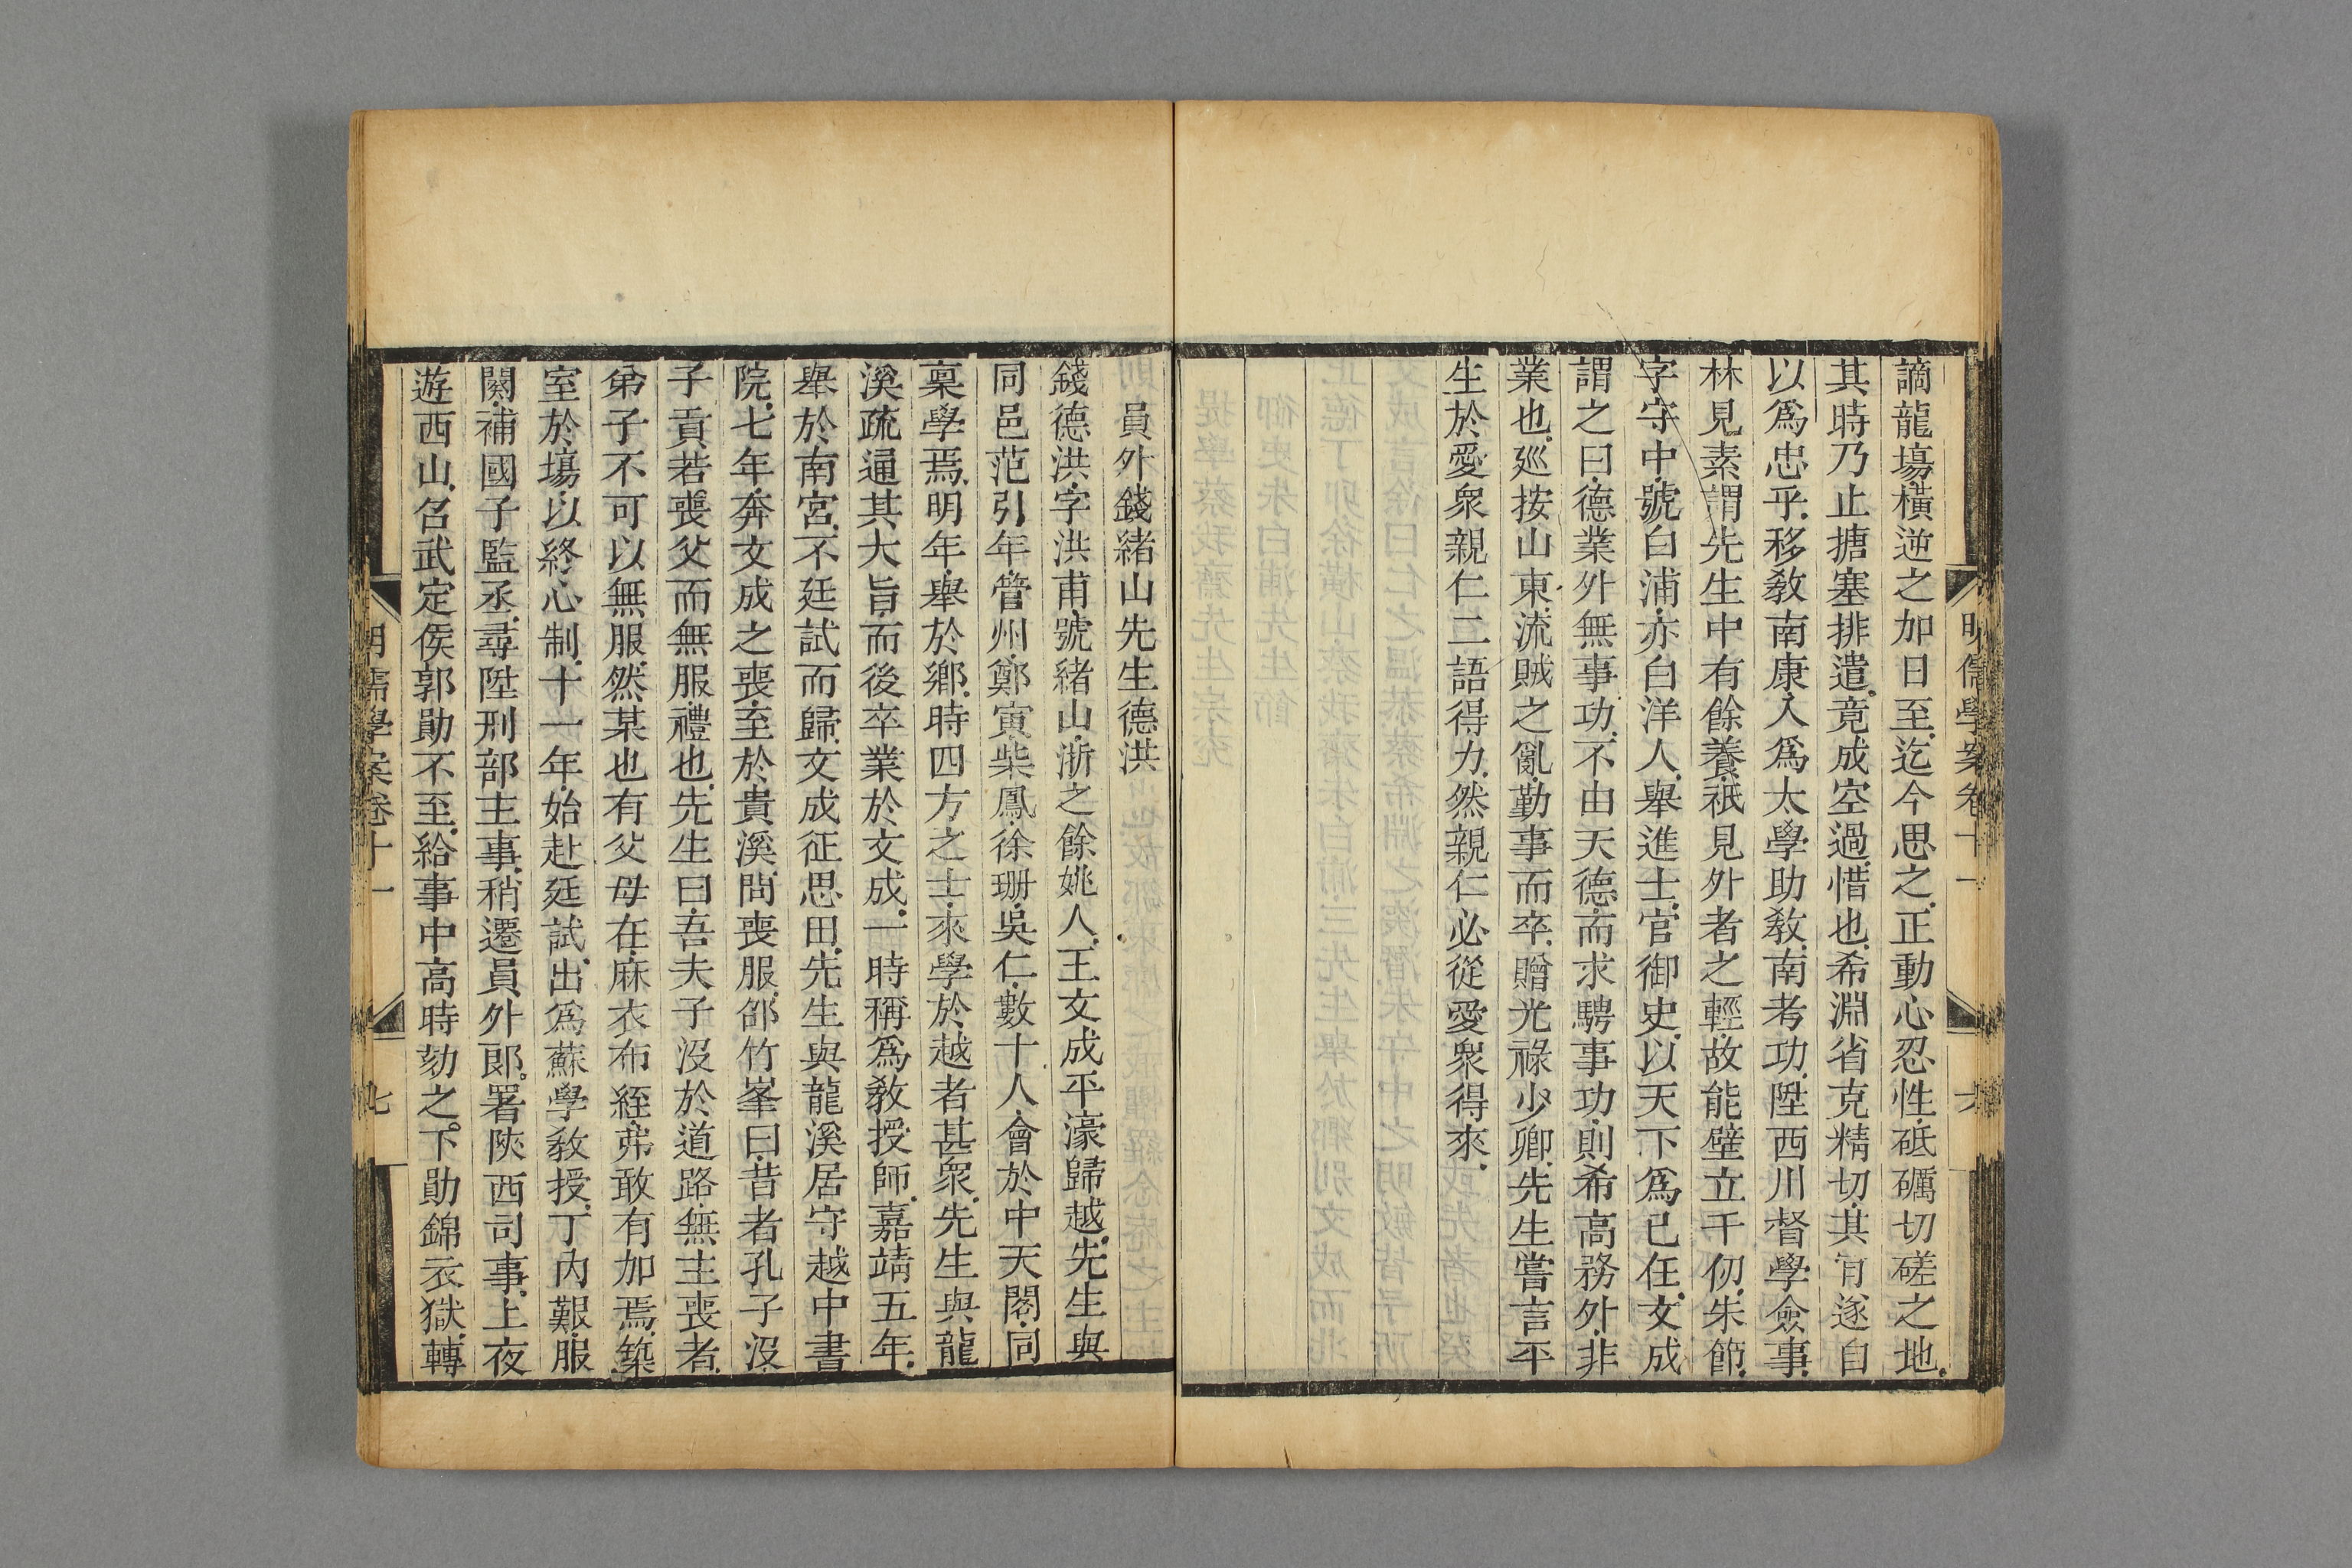 謫龍塲橫逆之加日至迄今思之正動心忍性砥礪切磋之地
其時乃止搪塞排遣竟成空過惜也希淵省克精切其肎遂自
以爲忠乎移教南康入爲太學助教南考功陞西川督學僉事
林見素謂先生中有餘養祇見外者之輕故能壁立千仞朱節
字守中號白浦亦白洋人舉進士官御史以天下爲己任文成
謂之曰德業外無事功不由天德而求騁事功則希高務外非
業也廵按山東流賊之亂勤事而卒贈光祿少卿先生嘗言平
生於愛衆親仁二語得力然親仁必從愛衆得來
明儒學案卷十一
六
員外錢緒山先生德洪
錢德洪字洪甫號緒山浙之餘姚人王文成平濠歸越先生與
同邑范引年管州鄭寅柴鳳徐珊吳仁數十人會於中天閣同
稟學焉明年舉於鄉時四方之士來學於越者甚衆先生與龍
溪疏通其大旨而後卒業於文成一時稱爲教授師嘉靖五年
舉於南宮不廷試而歸文成征思田先生與龍溪居守越中書
院七年奔文成之喪至於貴溪問喪服邵竹峯曰昔者孔子沒
子貢若喪父而無服禮也先生曰吾夫子沒於道路無主喪者
弟子不可以無服然某也有父母在麻衣布絰弗敢有加焉築
室於塲以終心制十一年始赴廷試出爲蘇學教授丁內艱服
闋補國子監丞尋陞刑部主事稍遷員外郎署陝西司事上夜
遊西山召武定侯郭勛不至給事中高時劾之下勛錦衣獄轉
明儒學案卷十一
七